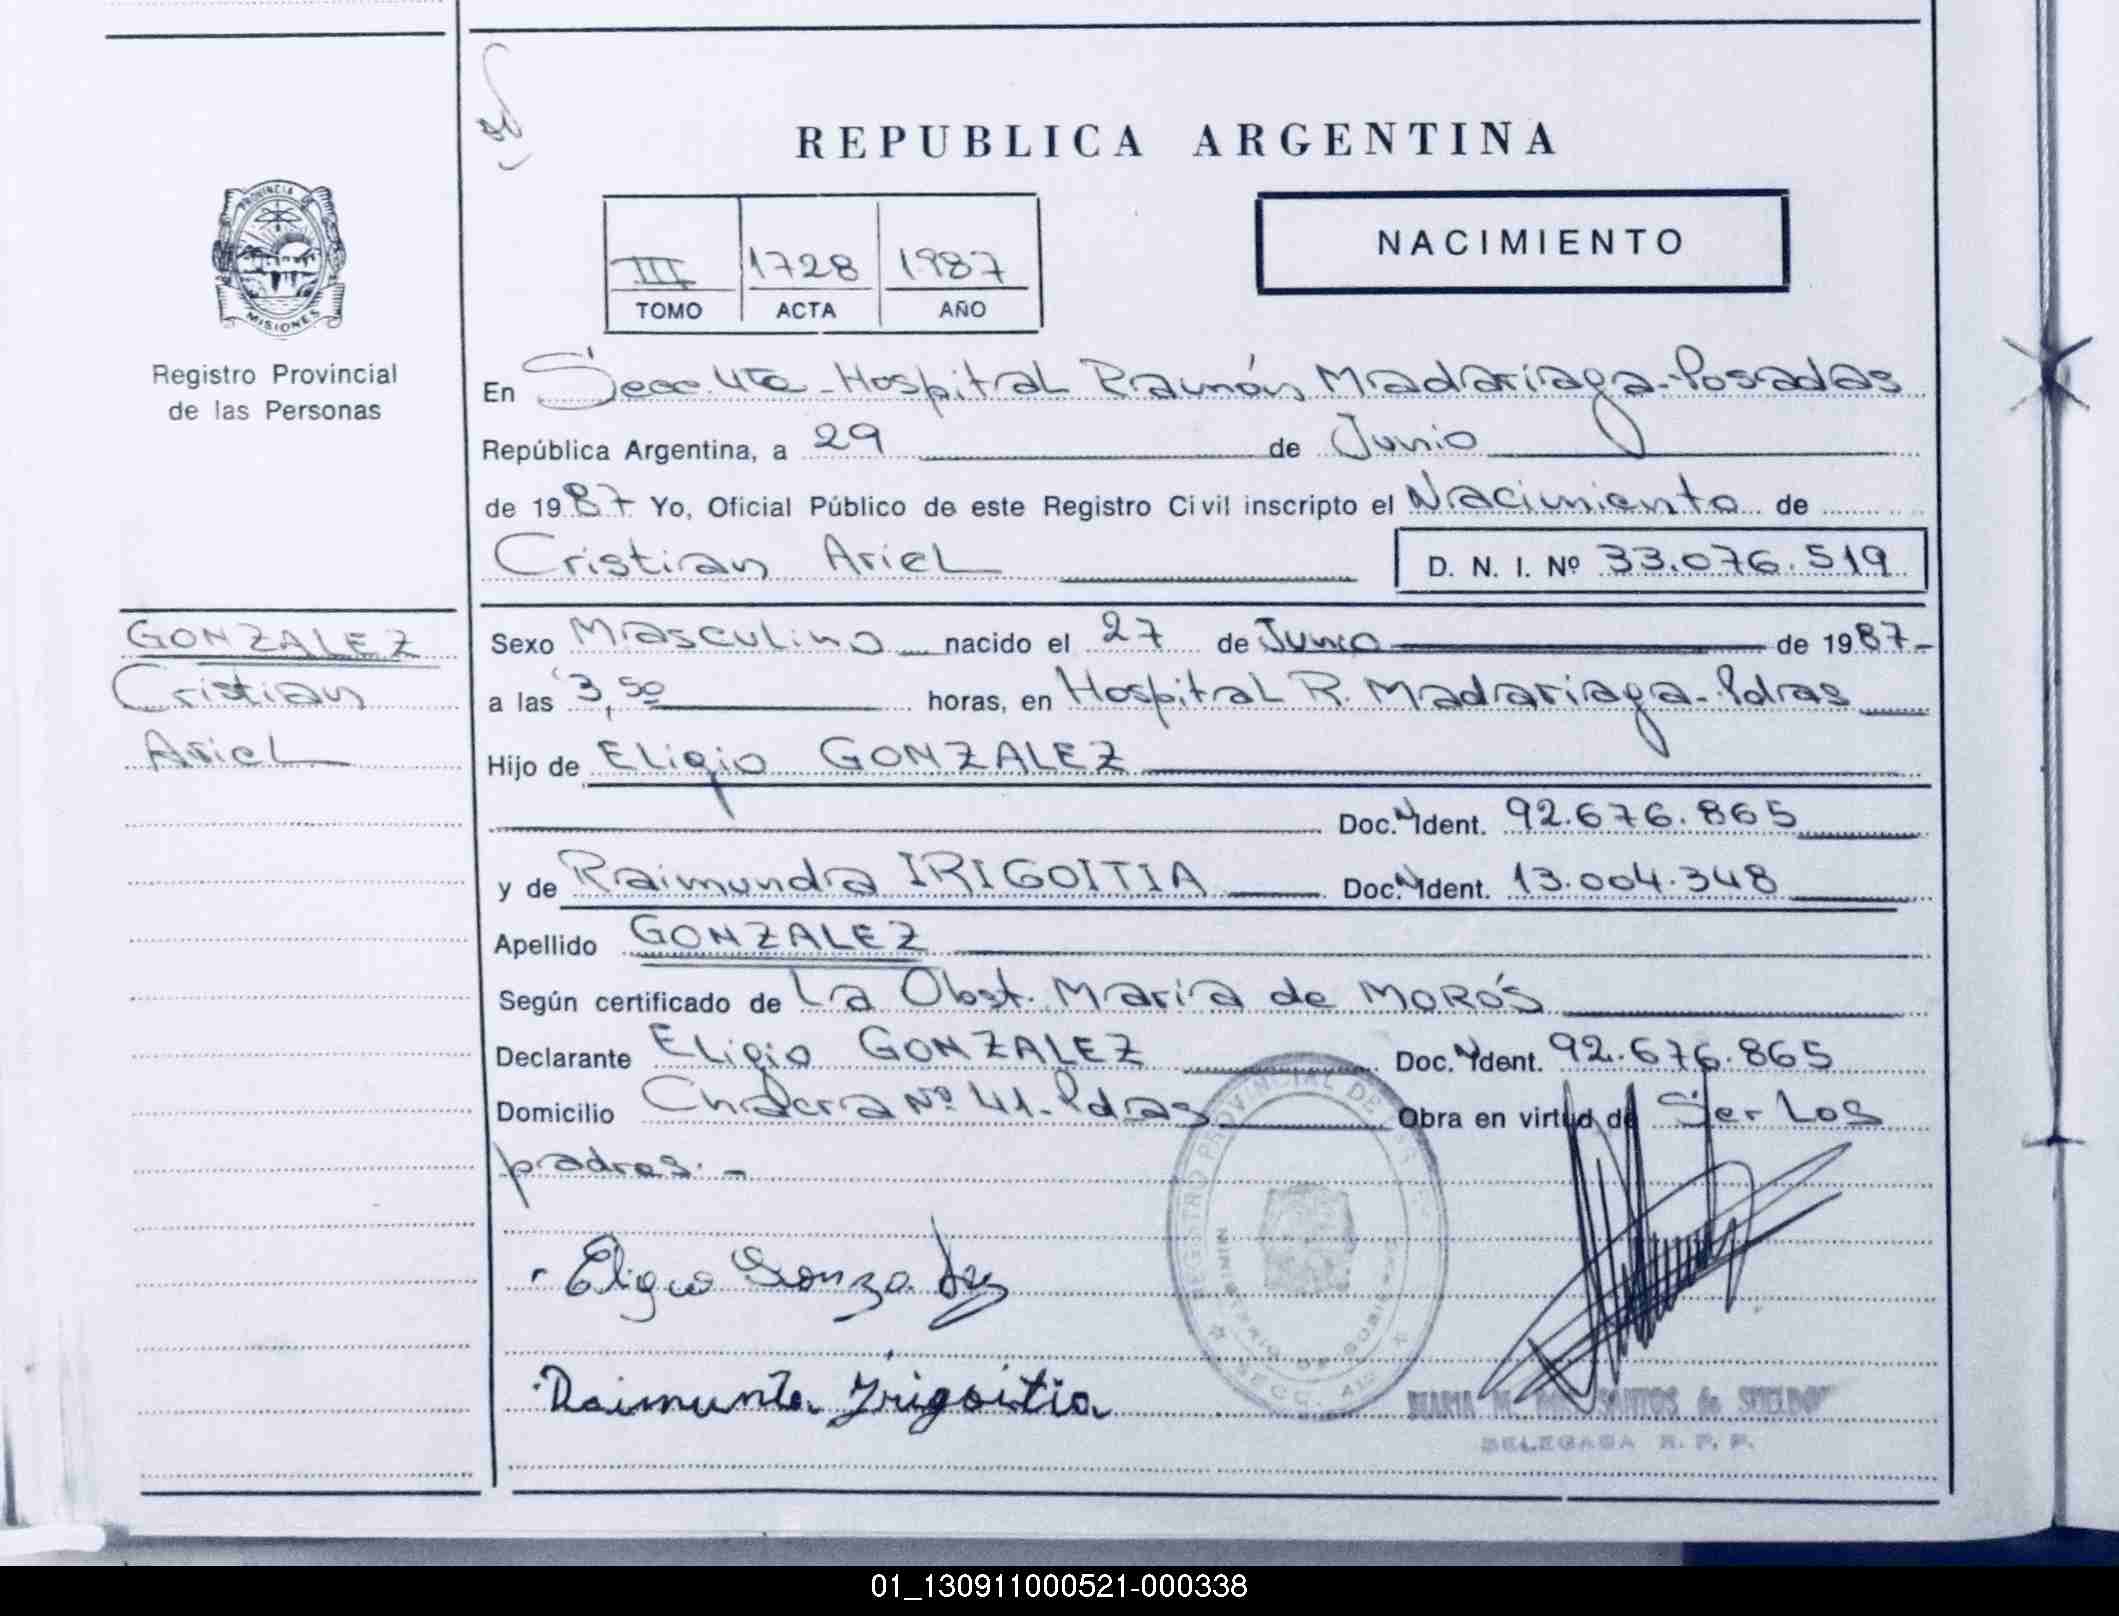 REPUBLICA ARGENTINA
PROVINCIA DE
MISIONES
Registro Provincial
de las Personas
III 1728 1987
TOMO ACTA AÑO
NACIMIENTO
En Secc. 4ta - Hospital Ramón Madariaga - Posadas
República Argentina, a 29 de Junio
de 1987 Yo, Oficial Público de este Registro Civil inscripto el Nacimiento de
Cristian Ariel D. N. I. Nº 33.076.519
GONZALEZ
Cristian
Ariel
Sexo Masculino nacido el 27 de Junio de 1987-
a las 3,50 horas, en Hospital R. Madariaga - Pdas
Hijo de Eligio GONZALEZ
Doc. Ident. 92.676.865
y de Raimunda IRIGOITIA Doc. Ident. 13.004.348
Apellido GONZALEZ
Según certificado de La Obst. María de MORÓS
Declarante Eligio GONZALEZ Doc. Ident. 92.676.865
Domicilio Chacra Nº 41 - Pdas Obra en virtud de Ser Los
padres. -
Eligio Gonzalez
Raimunda Irigoitia
REGISTRO PROVINCIAL DE LAS
MINISTERIO DE GOBIERNO
SECC. 4ta
MARIA M. SANTOS de
DELEGADA R. P. P.
01_130911000521-000338